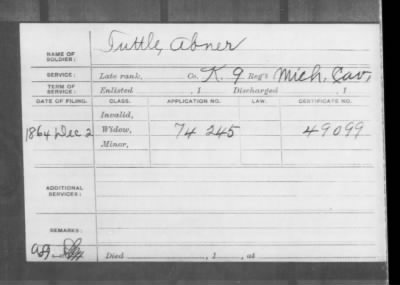 NAME OF SOLDIER: Tuttle, Abner
SERVICE: Late rank, Co. K. 9 Reg't Mich. Cav.
TERM OF SERVICE: Enlisted , 1 Discharged , 1
DATE OF FILING. CLASS. APPLICATION NO. LAW. CERTIFICATE NO.
Invalid,
1864 Dec 2 Widow, 74 245 49099
Minor,
ADDITIONAL SERVICES:
REMARKS:
Died , 1 , at